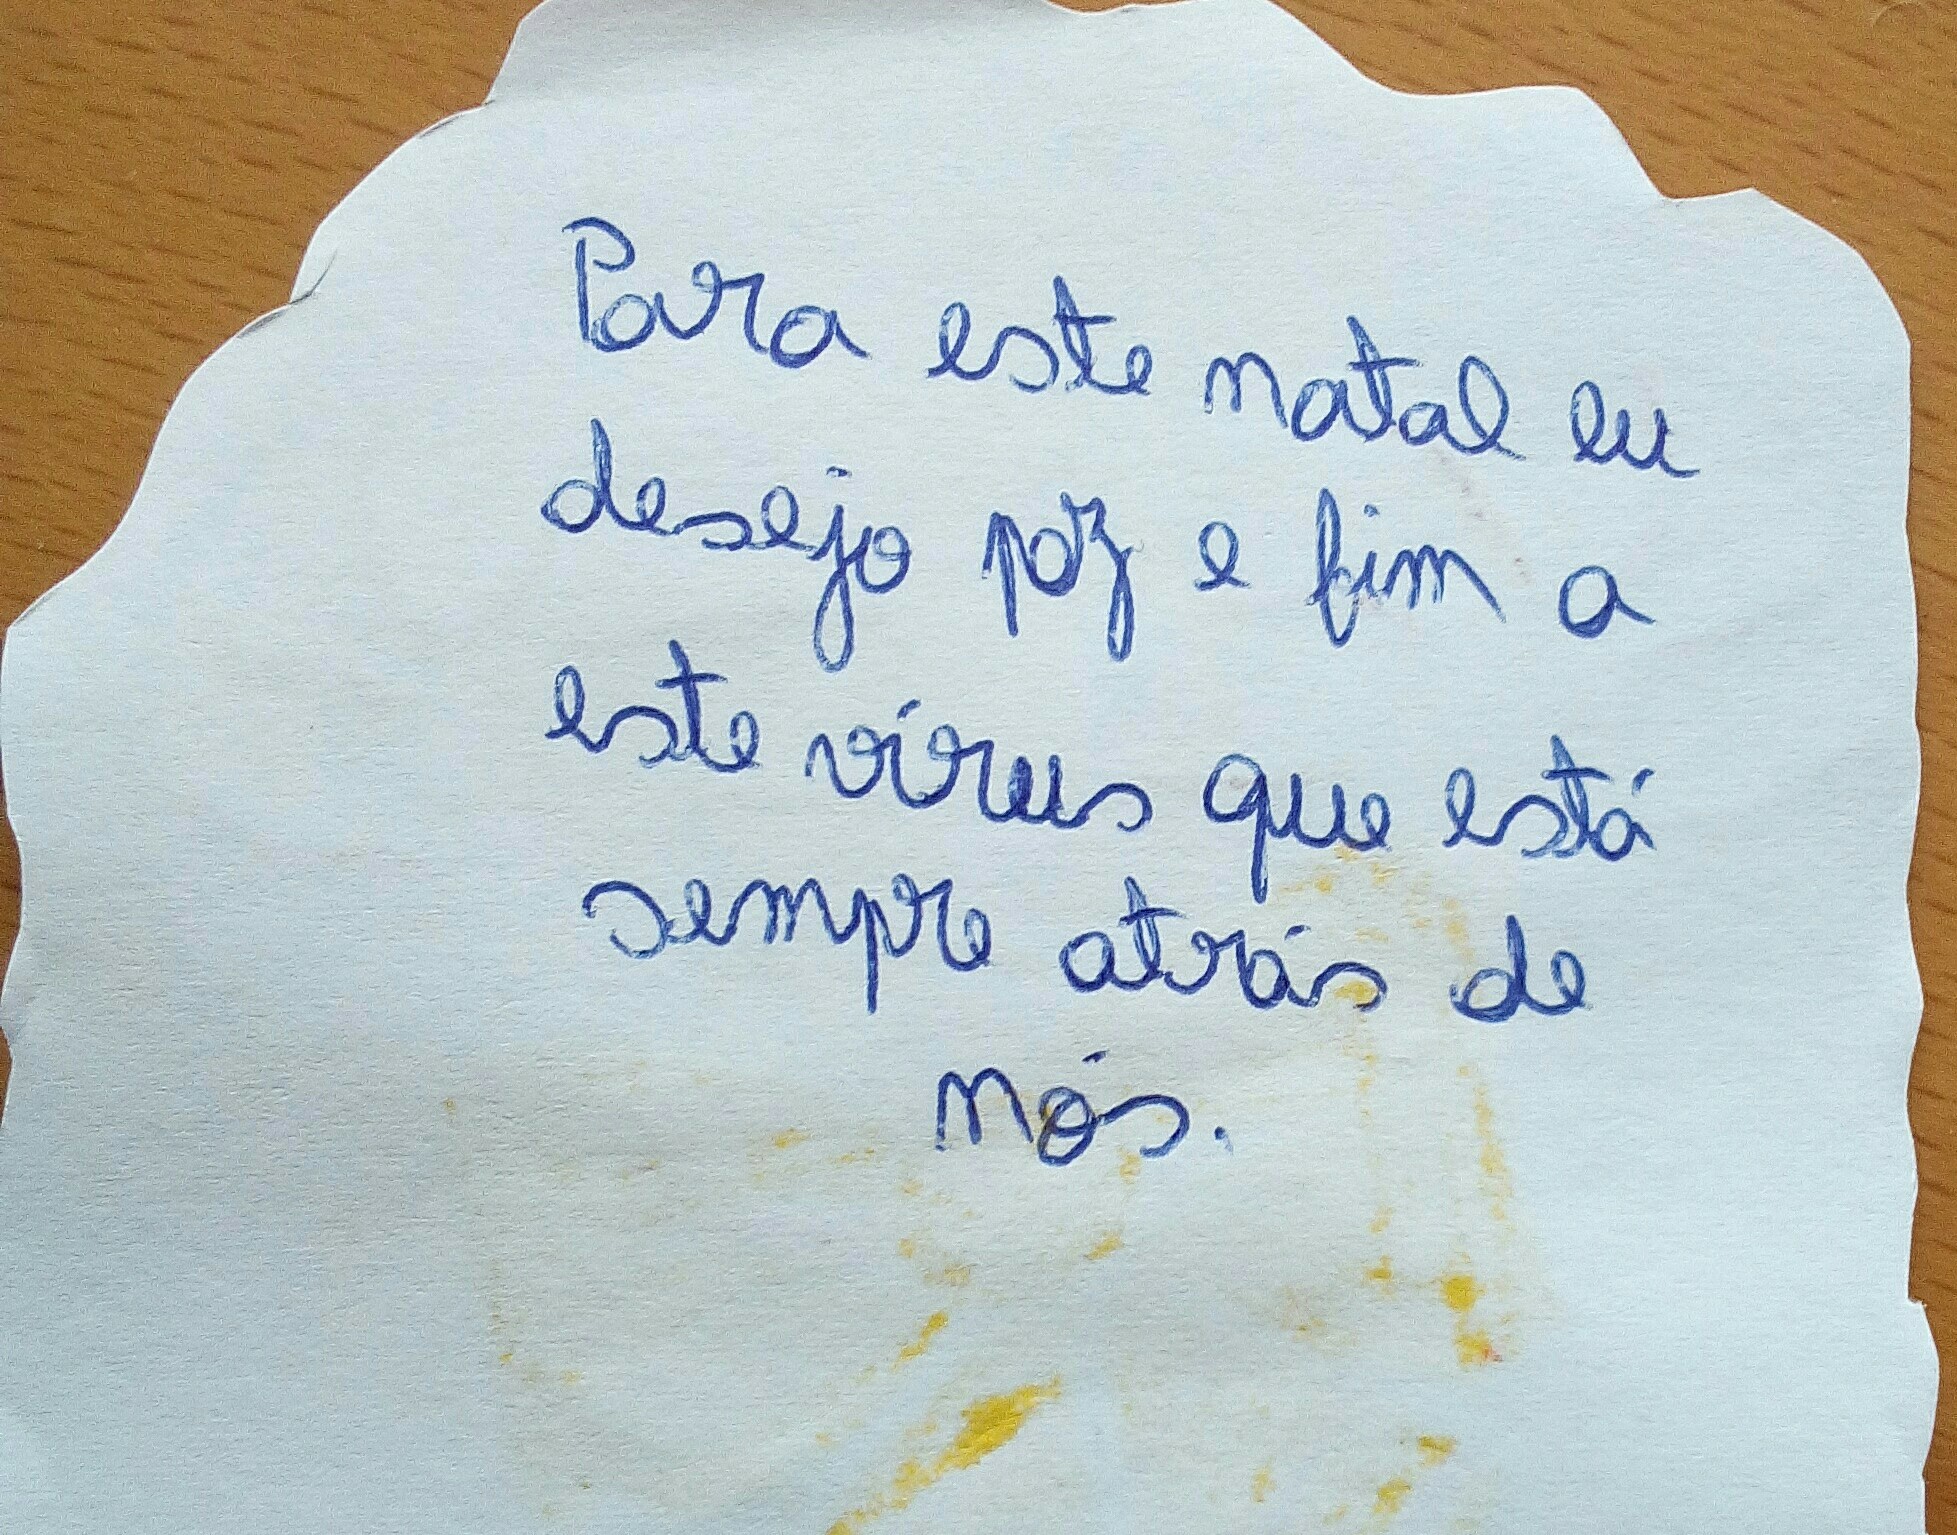 Para este natal eu
desejo paz e fim a
este vírus que está
sempre atrás de
nós.